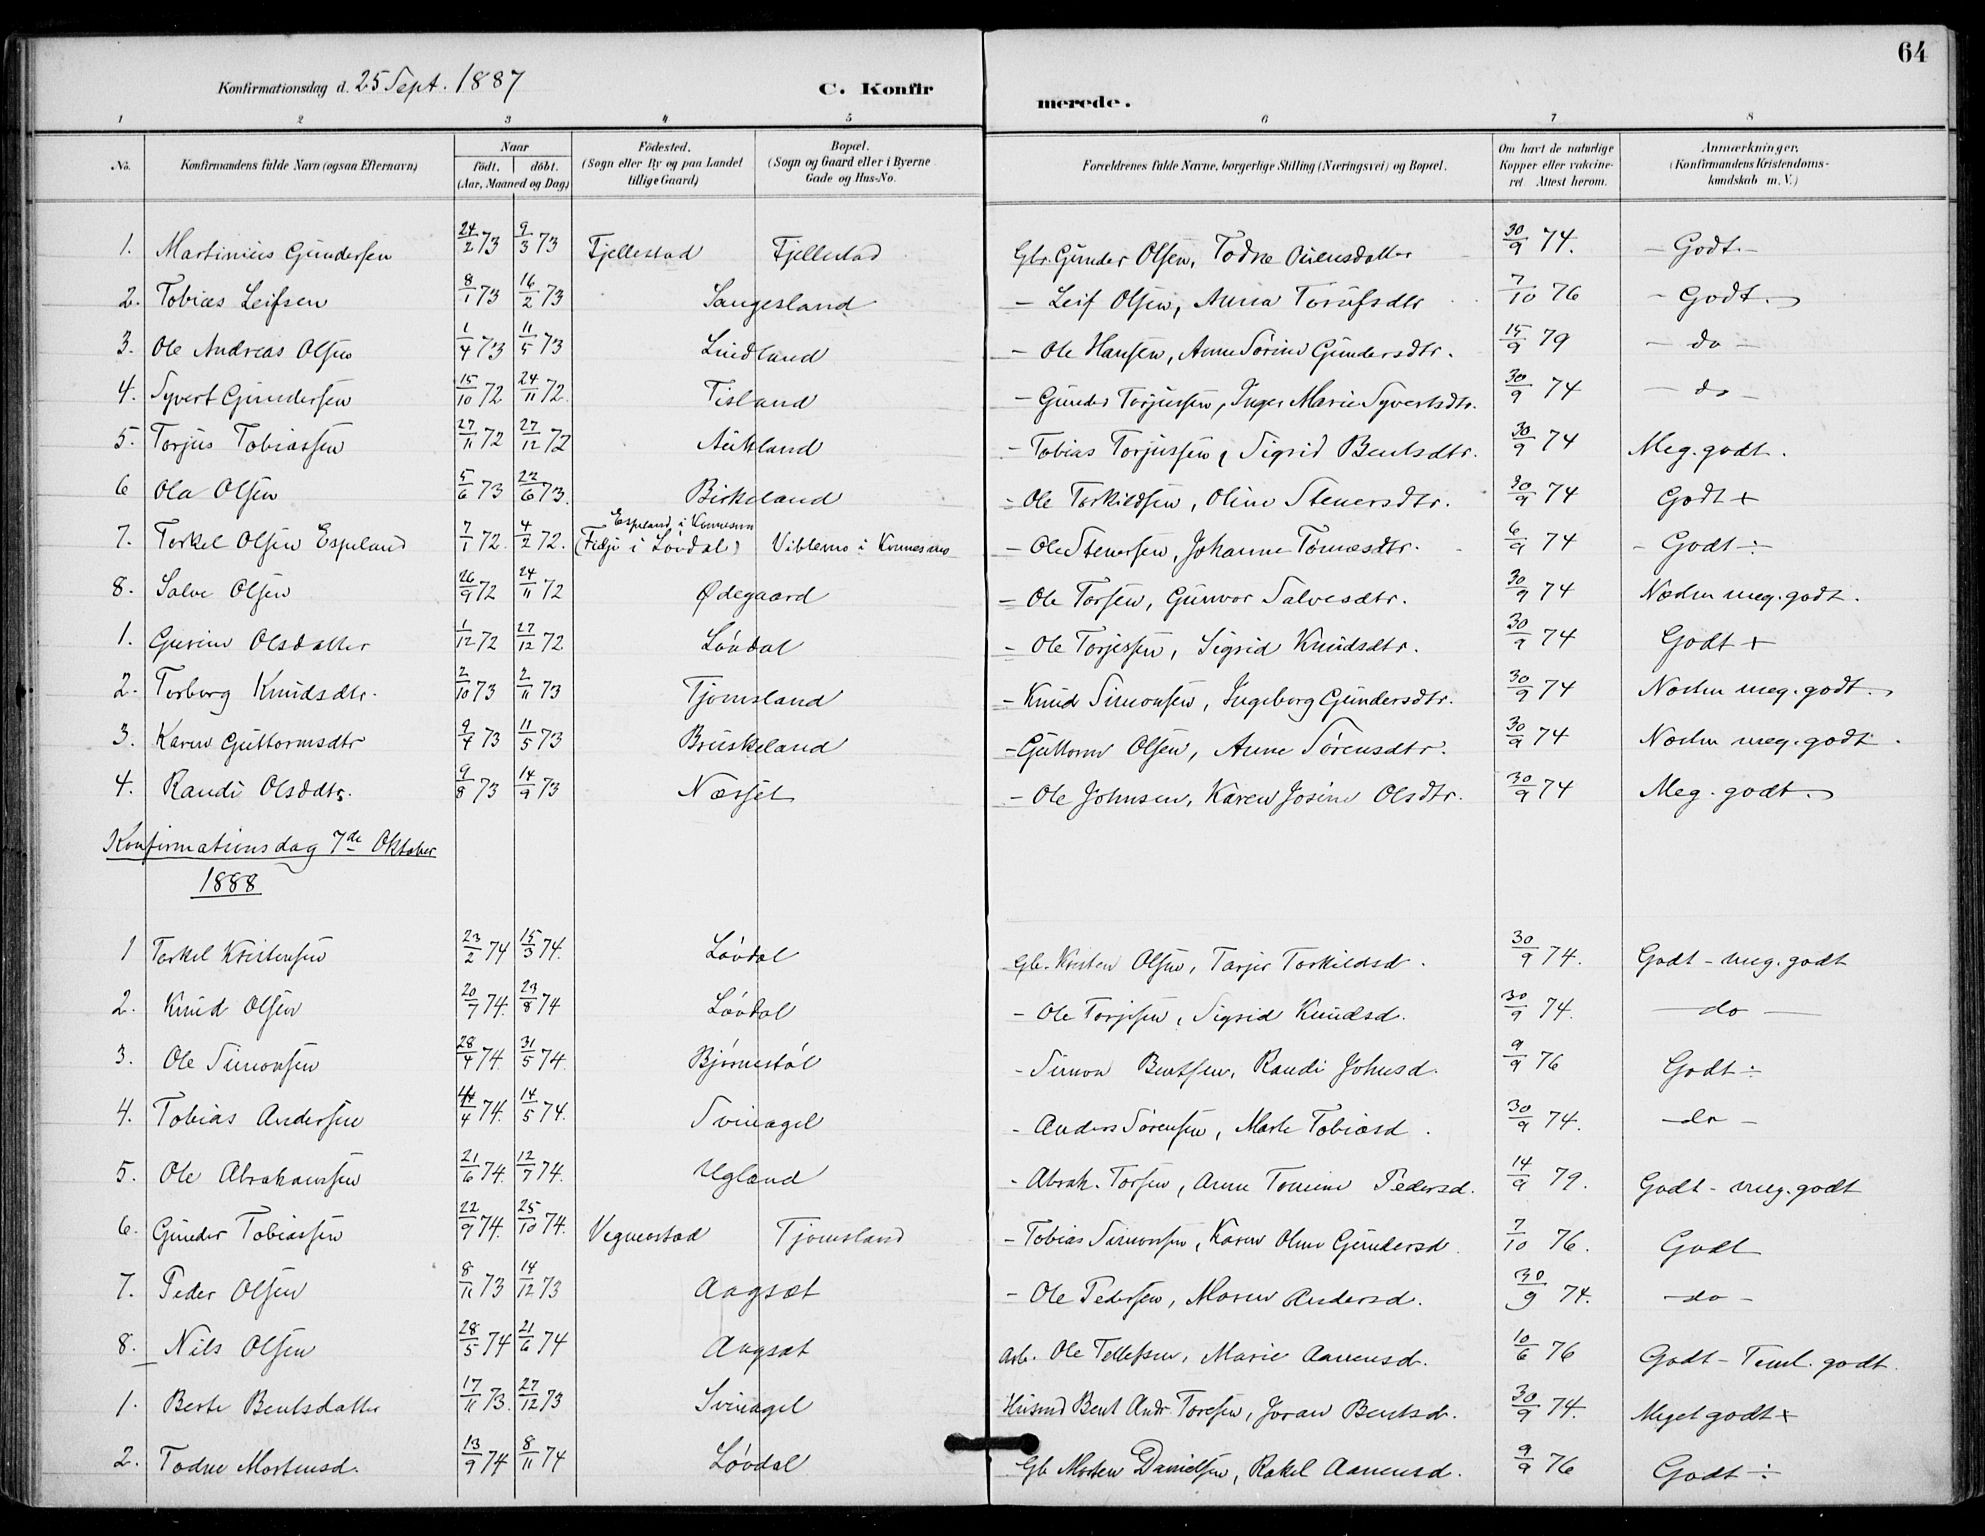 64
Konfirmationsdag d. 25 Sept. 1887 C. Konfirmerede.
1 2 3 4 5 6 7 8
No. Konfirmandens fulde Navn (ogsaa Efternavn) Naar födt. döbt. (Aar, Maaned og Dag) Födested. (Sogn eller By og paa Landet tillige Gaard) Bopæl. (Sogn og Gaard eller i Byerne Gade og Hus-No. Forældrenes fulde Navne, borgerlige Stilling (Næringsvei) og Bopæl. Om havt de naturlige Kopper eller vakcineret Attest herom. Anmærkninger. (Konfirmandens Kristendomskundskab m. V.)
1. Martinius Gundersen 24/2 73 9/3 73 Fjellestad Fjellestad Gbr. Gunder Olsen, Todne 30/9 74. - Godt -
2. Tobias Leifsen 8/1 73 16/2 73 Sangesland - Leif Olsen, Anna 7/10 76 - Godt.
3. Ole Andreas Olsen 1/4 73 11/5 73 Lindland - Ole Hansen, Anne Sørine Gundersdtr. 15/9 79 - do -
4. Syvert Gundersen 15/10 72 24/11 72. Tisland - Gunder Torjussen, Inger Marie Syvertsdtr. 30/9 74 - do -
5. Torjus Tobiassen 27/11 72 27/12 72 Aukland - Tobias Torjussen, Sigrid Bentsdtr. 30/9 74 Meg. godt.
6 Ola Olsen 5/6 73 22/6 73. Birkeland - Ole Torkildsen, Oline Stenersdtr. 30/9 74 Godt +
7. Terkel Olsen Espeland 7/1 72. 4/2 72. Espeland i Konnesmo (Fidje i Løvdal) Viblemo i Konnesmo - Ole Stenersen, Johanne Tomasdtr. 6/9 74 - Godt ÷
8. Salve Olsen 26/9 72 24/11 72 Ødegaard - Ole Torsen, Gunvor Salvesdtr. 30/9 74 Næsten meg. godt.
1. Gurine Olsdatter 1/12 72 27/12 72 Løvdal - Ole Torjessen, Sigrid Knudsdtr. 30/9 74 Godt +
2. Torborg Knudsdtr. 2/10 73 2/11 73 Tjomsland - Knud Simonsen, Ingeborg Gundersdtr. 30/9 74 Næsten meg. godt.
3. Karen Guttormsdtr 9/4 73 11/5 73 Bruskeland - Guttorm Olsen, Anne Sørensdtr. 30/9 74 Næsten meg. godt.
4. Randi Olsddtr. 9/8 73 14/9 73 Næsset - Ole Johnsen, Karen Josine Olsdtr. 30/9 74 Meg. godt.
Konfirmationsdag 7de Oktober
1888
1 Terkel Kristensen 23/2 74 15/3 74. Løvdal Gb. Kristen Olsen, Tarjer Torkildsd. 30/9 74. Godt - meg. godt
2. Knud Olsen 20/7 74. 23/8 74 Løvdal - Ole Torjesen, Sigrid Knudsd. 30/9 74. - do -
3. Ole Simonsen 28/4 74. 31/5 74. Bjørnestøl - Simon Bentsen, Randi Johnsd. 9/9 76 Godt ÷
4. Tobias Andersen 14/4 74. 14/5 74. Svinagel - Anders Sørensen, Marte Tobiasd. 30/9 74. - do -
5. Ole Abrahamsen 21/6 74. 12/7 74. Ugland - Abrah. Torsen, Anne Tomine Pedersd. 14/9 79. Godt - meg. godt
6. Gunder Tobiassen 22/9 74. 25/10 74. Vegmostad Tjomsland - Tobias Simonsen, Karen Oline Gundersd. 7/10 76. Godt
7. Peder Olsen 8/11 73 14/12 73 Aagsæt - Ole Pedersen, Maren Andersd. 30/9 74. - do -
8. Nils Olsen 28/5 74 21/6 74 Aagsæt Arb. Ole Tellefsen, Marie Aanensd. 10/6 76 Godt - Teml. godt.
1. Berte Bentsdatter 17/11 73. 27/12 73 Svinagel Husmd Bent Andr. Toresen, Joran Bentsd. 30/9 74. Meget godt +
2. Todne Mortensd. 13/9 74 8/11 74 Løvdal Gb Morten Danielsen, Rakel Aanensd. 9/9 76 Godt ÷